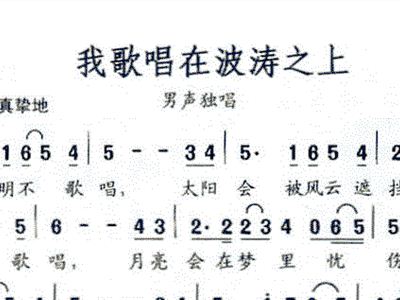 我歌唱在波涛之上
真挚地 男声独唱
1 6 5 4 | 5 - - 3 4 | 5· 1 6 5 4 | 2
明不 歌唱, 太阳 会 被风云遮挡
5 | 6 - - 4 3 | 2· 2 2 3 4 0 6 5 | 5
歌 唱, 月亮 会在梦 里 忧 伤